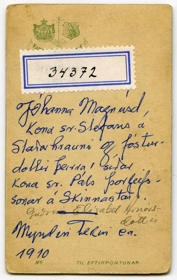 34372
Jóhanna Magnúsd.
Kona sr. Stefáns á
Staðarhrauni og fóstur-
dóttir þeirra síðar
kona sr. Páls Þorleifs-
sonar á Skinnastað.
Guðrún Elísabet Arnórs-
dóttir
Myndin tekin ca.
1910
No.
TIL EFTIRPÖNTUNAR.